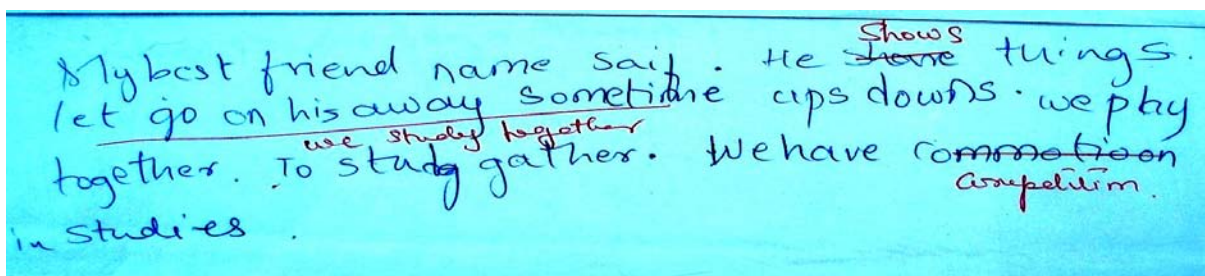 Shows
My best friend name saif. He have things.
let go on his away sometime ups downs. we play
we study together
together. To study gather. We have commotioon
competition.
in studies.